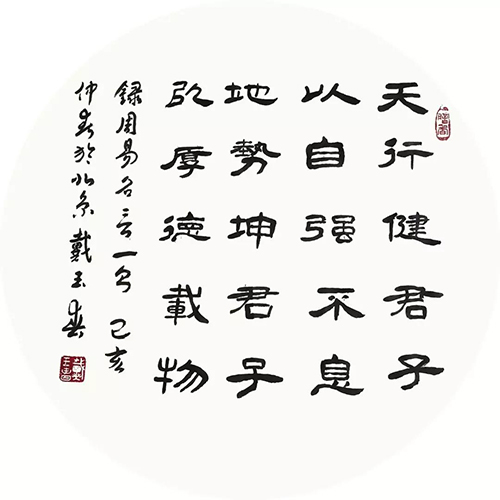 天行健君子
以自强不息
地勢坤君子
以厚德載物
録周易名言一句 己亥
仲春於北京 戴玉春